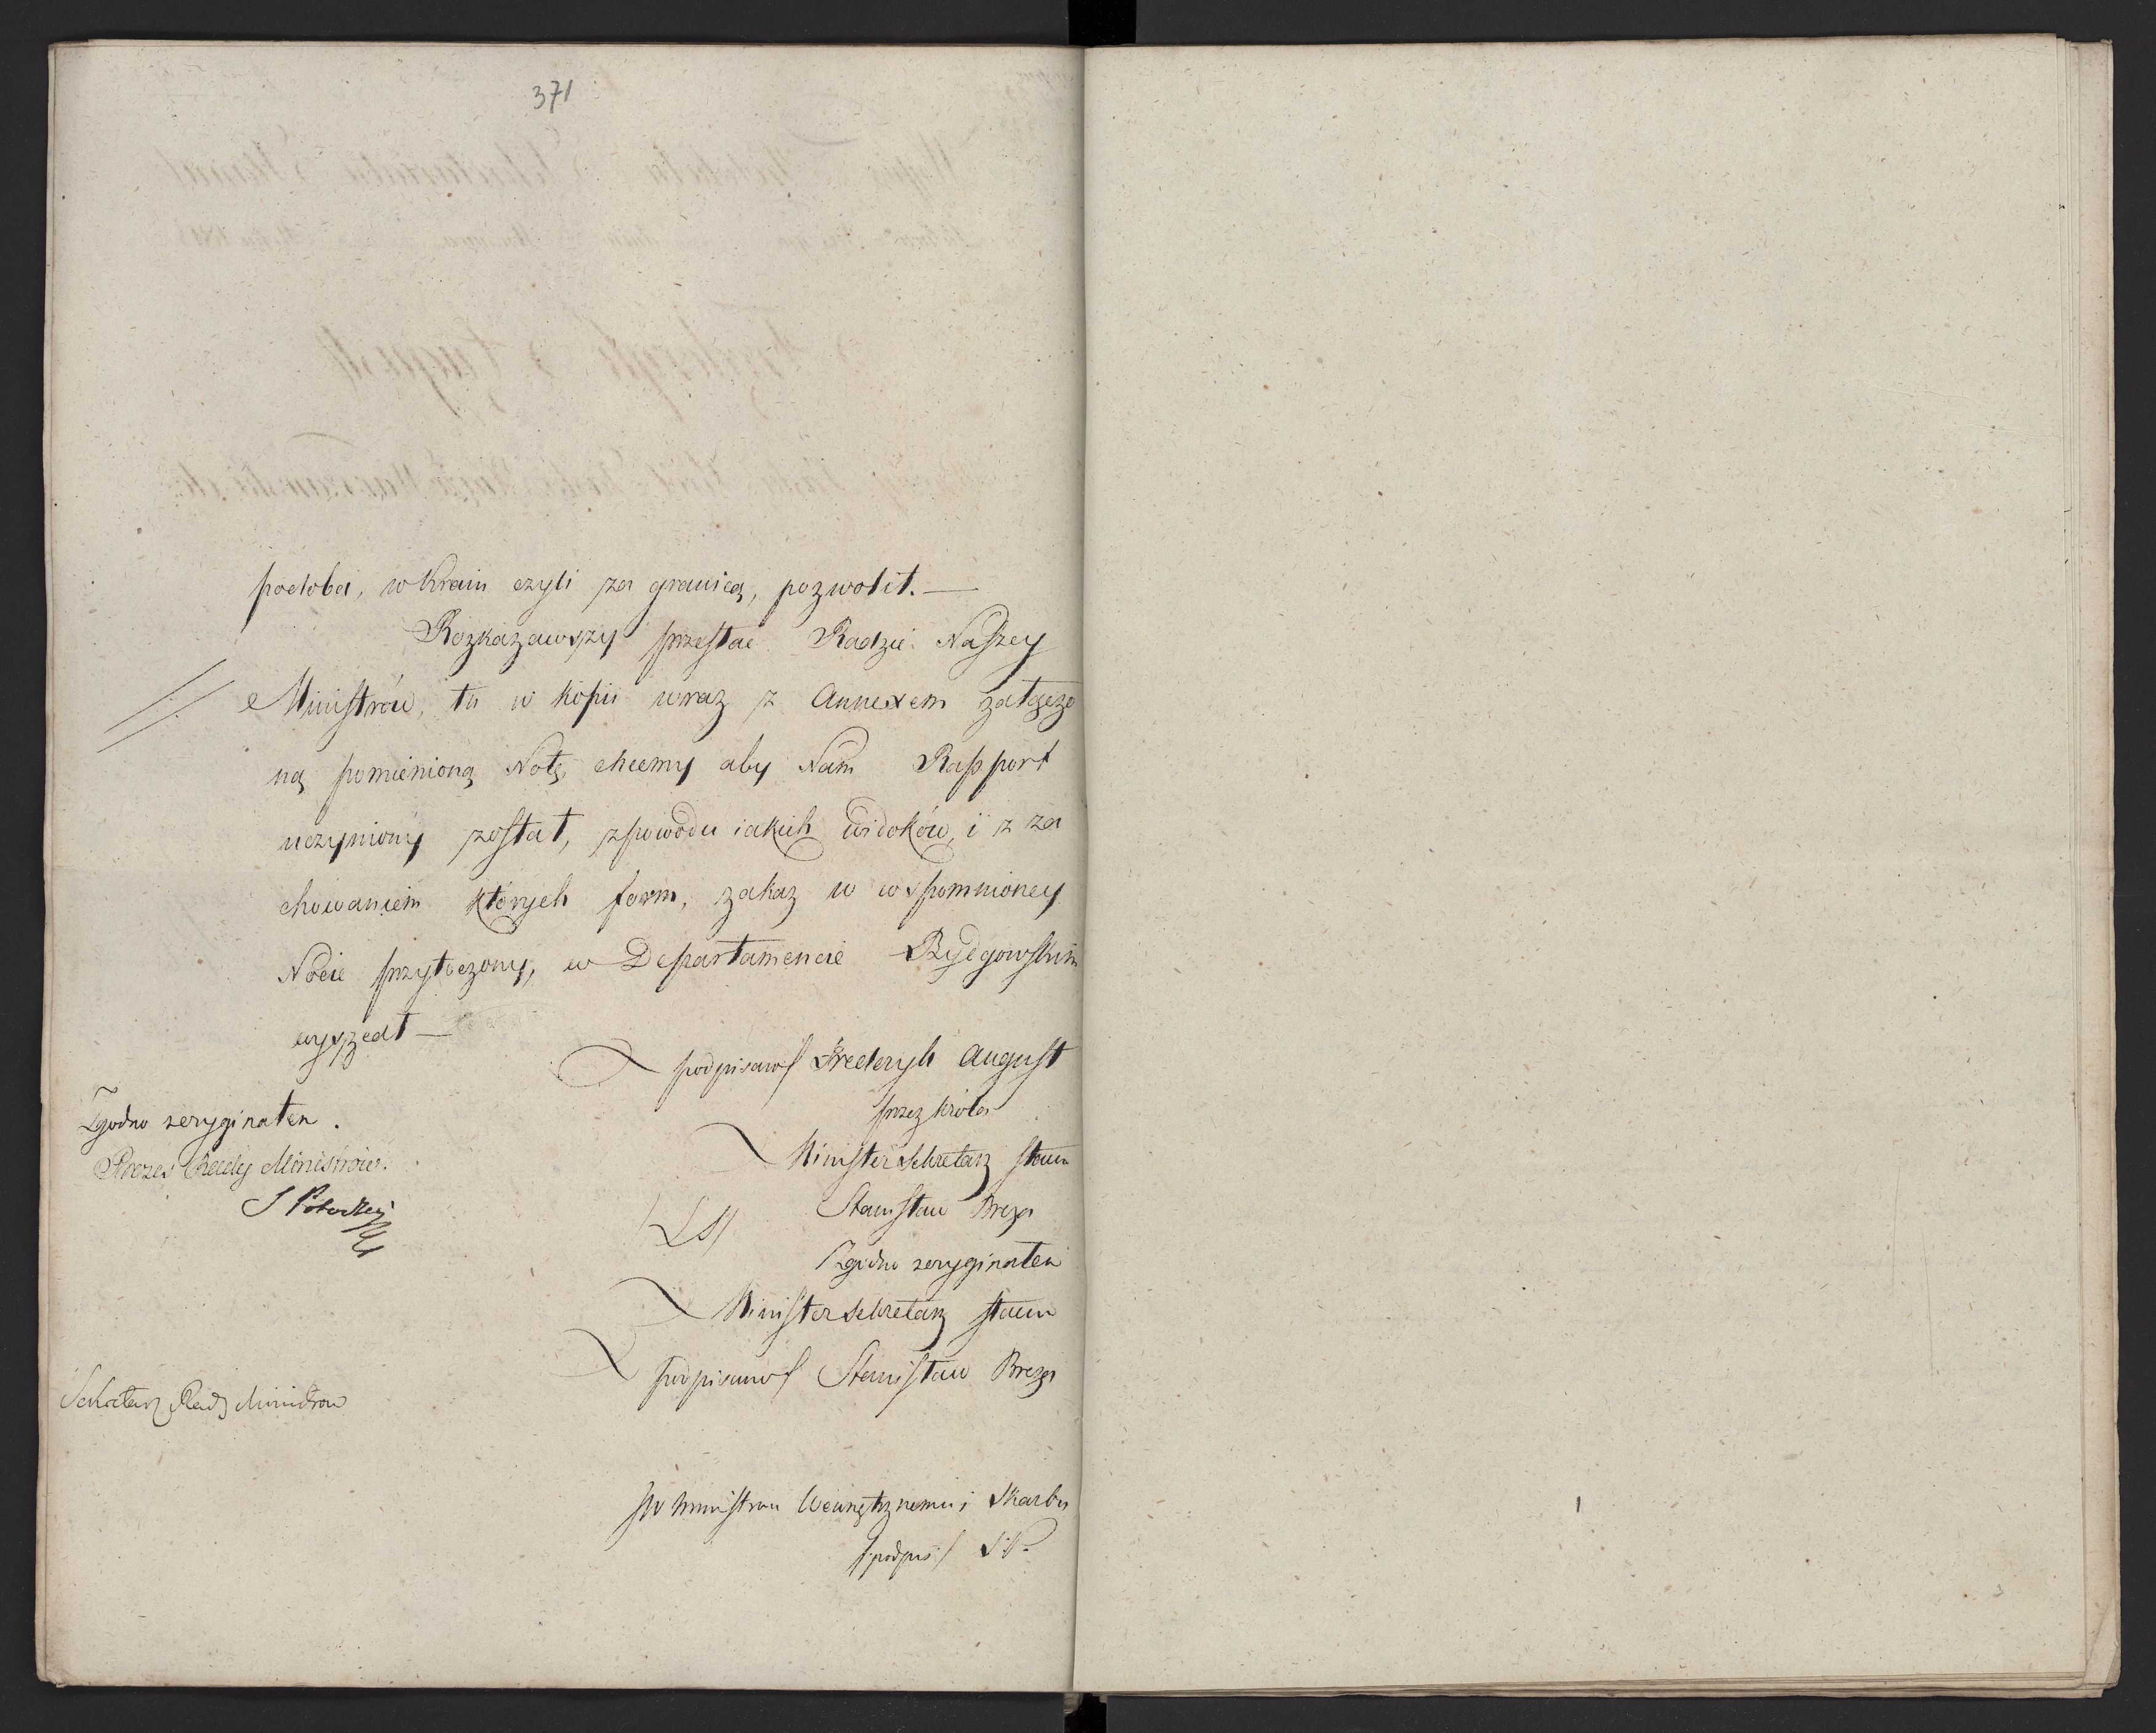 371
podoba, w Kraiu czyli za granicą, pozwolił. —
Rozkazawszy przesłać Radzie Naszey
// Ministrów, tu w kopii wraz z Annexem załączo
ną pomienioną Notę, chcemy aby Nam Rapport
uczyniony został, z powodu iakich widoków, i z za
chowaniem których form, zakaz w wspomnioney
Nocie przytoczony, w Departamencie Bydgowskim
wyszedł —
podpisano/ Frederyk August
przez Króla
Minister Sekretarz stanu
/LS/ Stanisław Breza
Zgodno z oryginałem
Minister Sekretarz stanu
podpisano/ Stanisław Breza
Zgodno z oryginałem.
Prezes Rady Ministrów.
S Potocki
Sekretarz Rady Ministrow
JW Ministrom Wewnętrznemu i Skarbu
/podpis/ S.P.